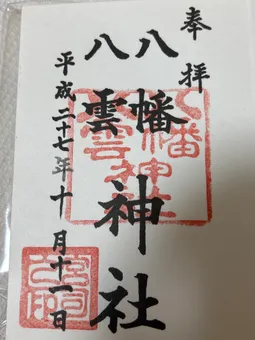 奉拝
八幡
八雲
神社
平成二十七年十月十一日